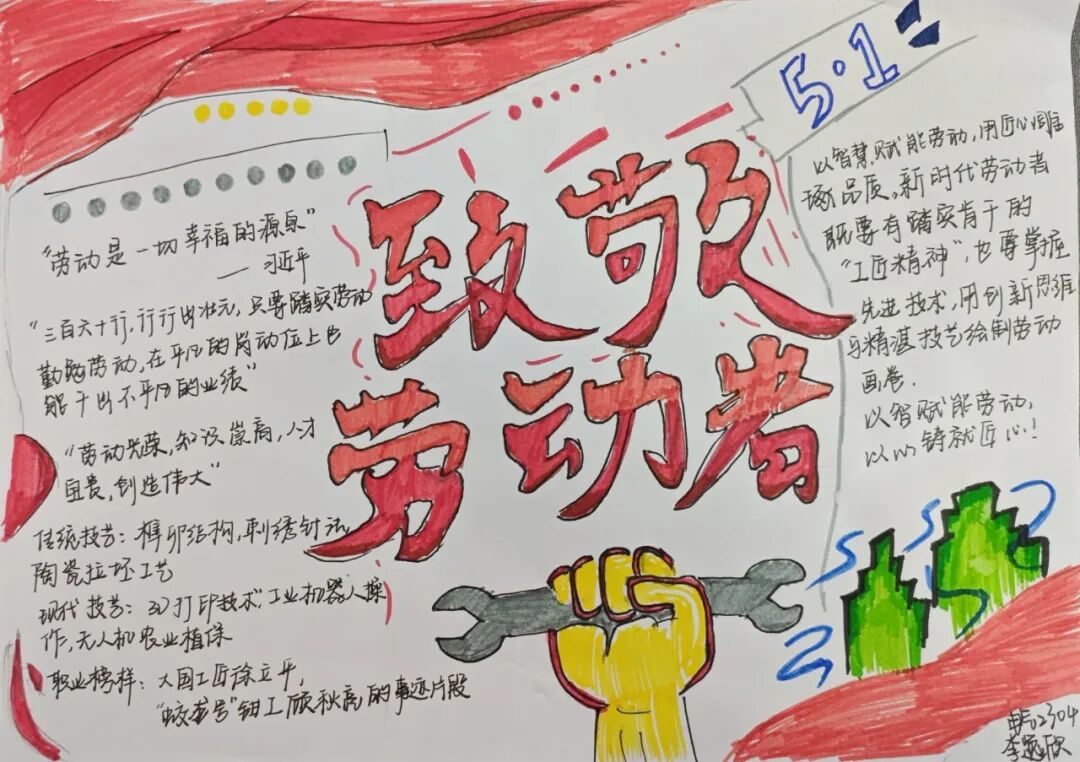 5·1
致敬
劳动者
"劳动是一切幸福的源泉"
—— 习近平
"三百六十行,行行出状元,只要踏实劳动
勤勉劳动,在平凡的岗动位上也
能干出不平凡的业绩"
"劳动光荣,知识崇高,人才
宝贵,创造伟大"
传统技艺:榫卯结构,刺绣针法,
陶瓷拉坯工艺
现代技艺:3D打印技术,工业机器人操
作,无人机农业植保
职业榜样:大国工匠徐立平,
"蛟龙号"钳工顾秋亮的事迹片段
以智慧赋能劳动,用匠心雕
琢品质。新时代劳动者
既要有踏实肯干的
"工匠精神",也要掌握
先进技术,用创新思维
与精湛技艺绘制劳动
画卷.
以智赋能劳动,
以心铸就匠心!
2304
李欣